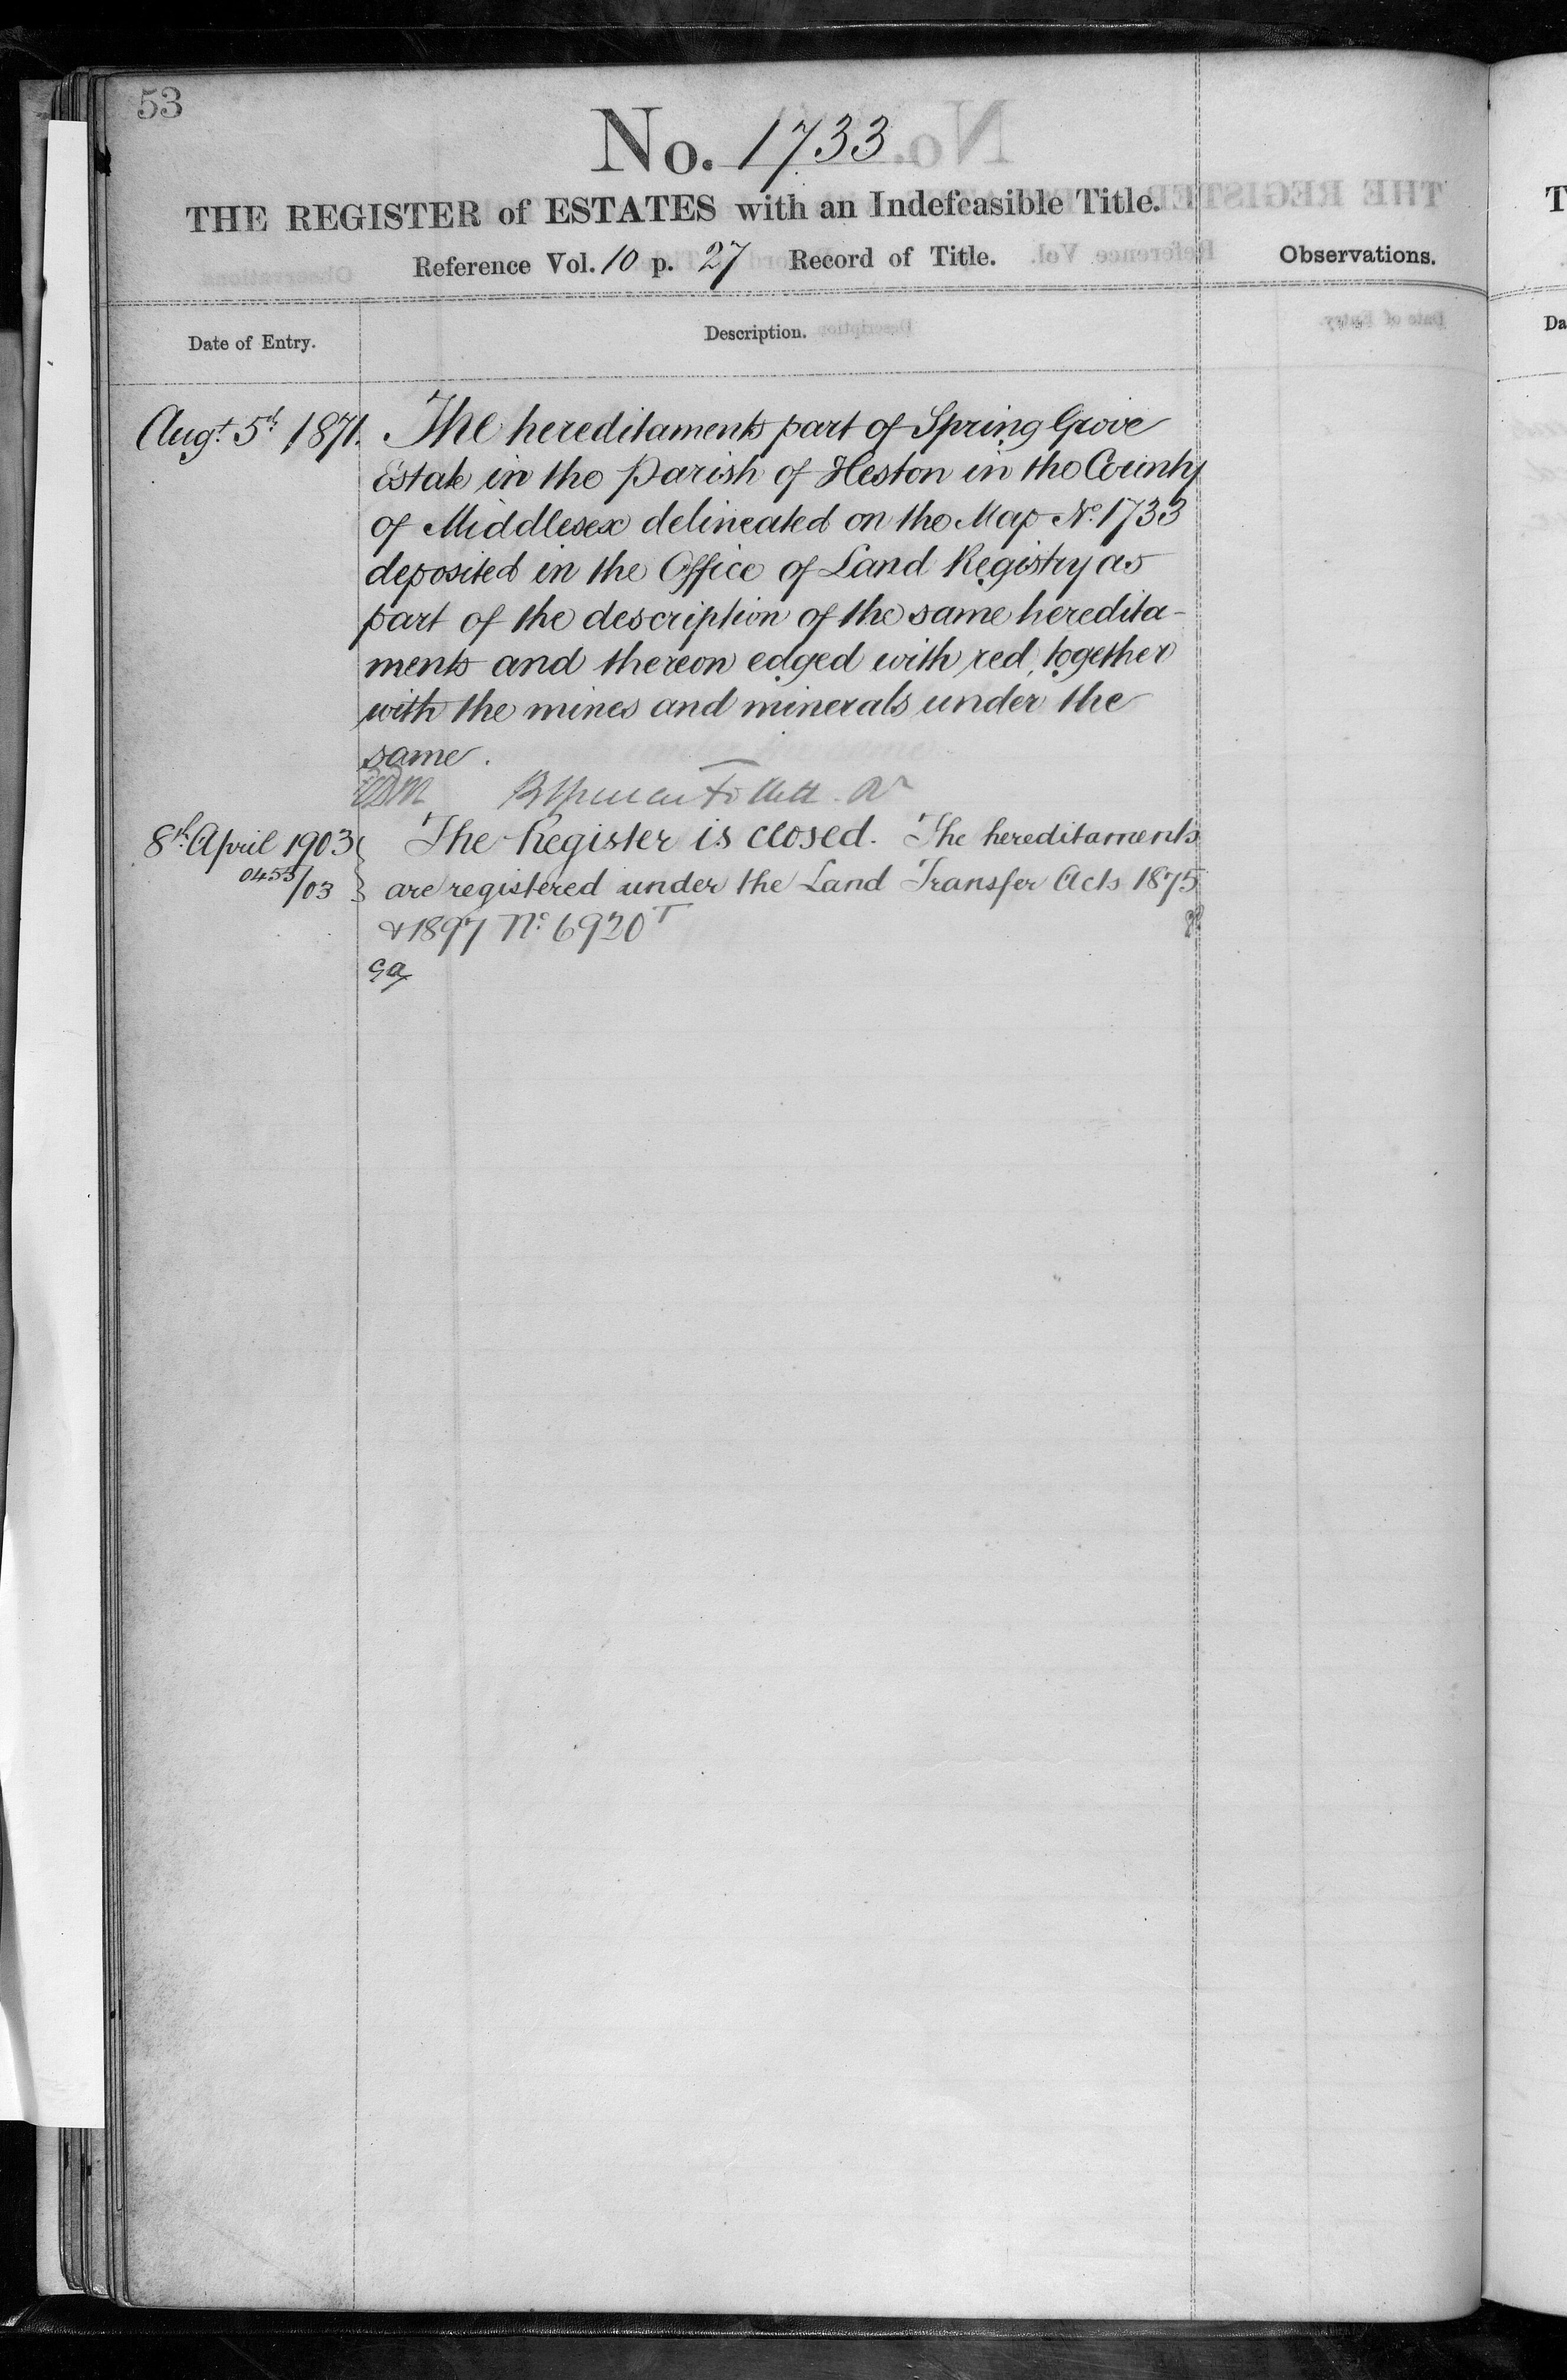 53
No. 1733
THE REGISTER of ESTATES with an Indefeasible Title.
Reference Vol. 10 p. 27 Record of Title.
Observations.
Date of Entry.
Description.
Augt. 5th 1871. The hereditaments part of Spring Grove
Estate in the Parish of Heston in the County
of Middlesex delineated on the Map No. 1733
deposited in the Office of Land Registry as
part of the description of the same heredita-
ments and thereon edged with red, together
with the mines and minerals under the
same.
8th April 1903 The Register is closed. The hereditaments
0453/03 are registered under the Land Transfer Acts 1875
& 1897 No. 6920T